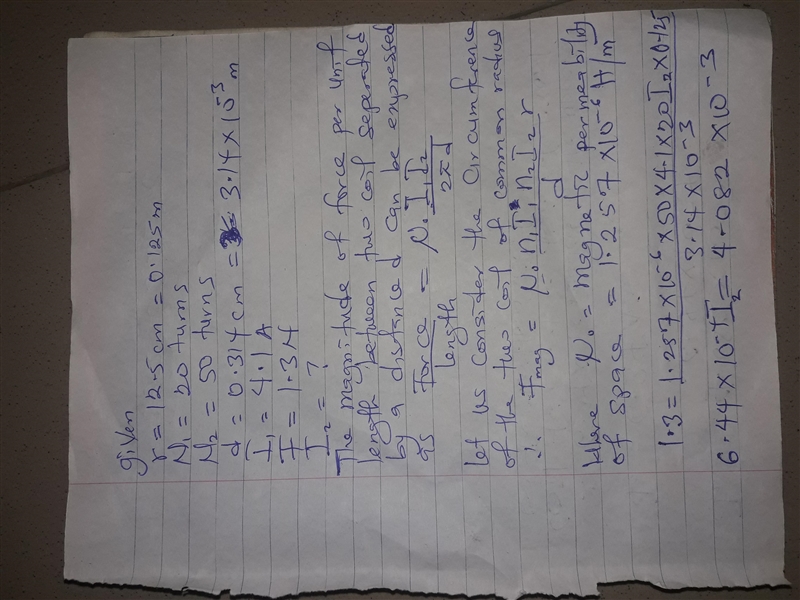 given
r = 12.5 cm = 0.125m
N₁ = 20 turns
N₂ = 50 turns
d = 0.314 cm = 3.14 × 10⁻³ m
I₁ = 4.1 A
F = 1.3 N
I₂ = ?
The magnitude of force per unit
length between two coil separated
by a distance d can be expressed
as Force/length = μ₀ I₁I₂/2πd
Let us consider the Circumference
of the two coil of common radius
∴ Fmag = μ₀ n₁I₁ n₂I₂ r/d
Where μ₀ = magnetic permeability
of space = 1.257 × 10⁻⁶ H/m
1.3 = 1.257 × 10⁻⁶ × 50 × 4.1 × 20 I₂ × 0.125/3.14 × 10⁻³
6.44 × 10⁻⁴ I₂ = 4.082 × 10⁻³